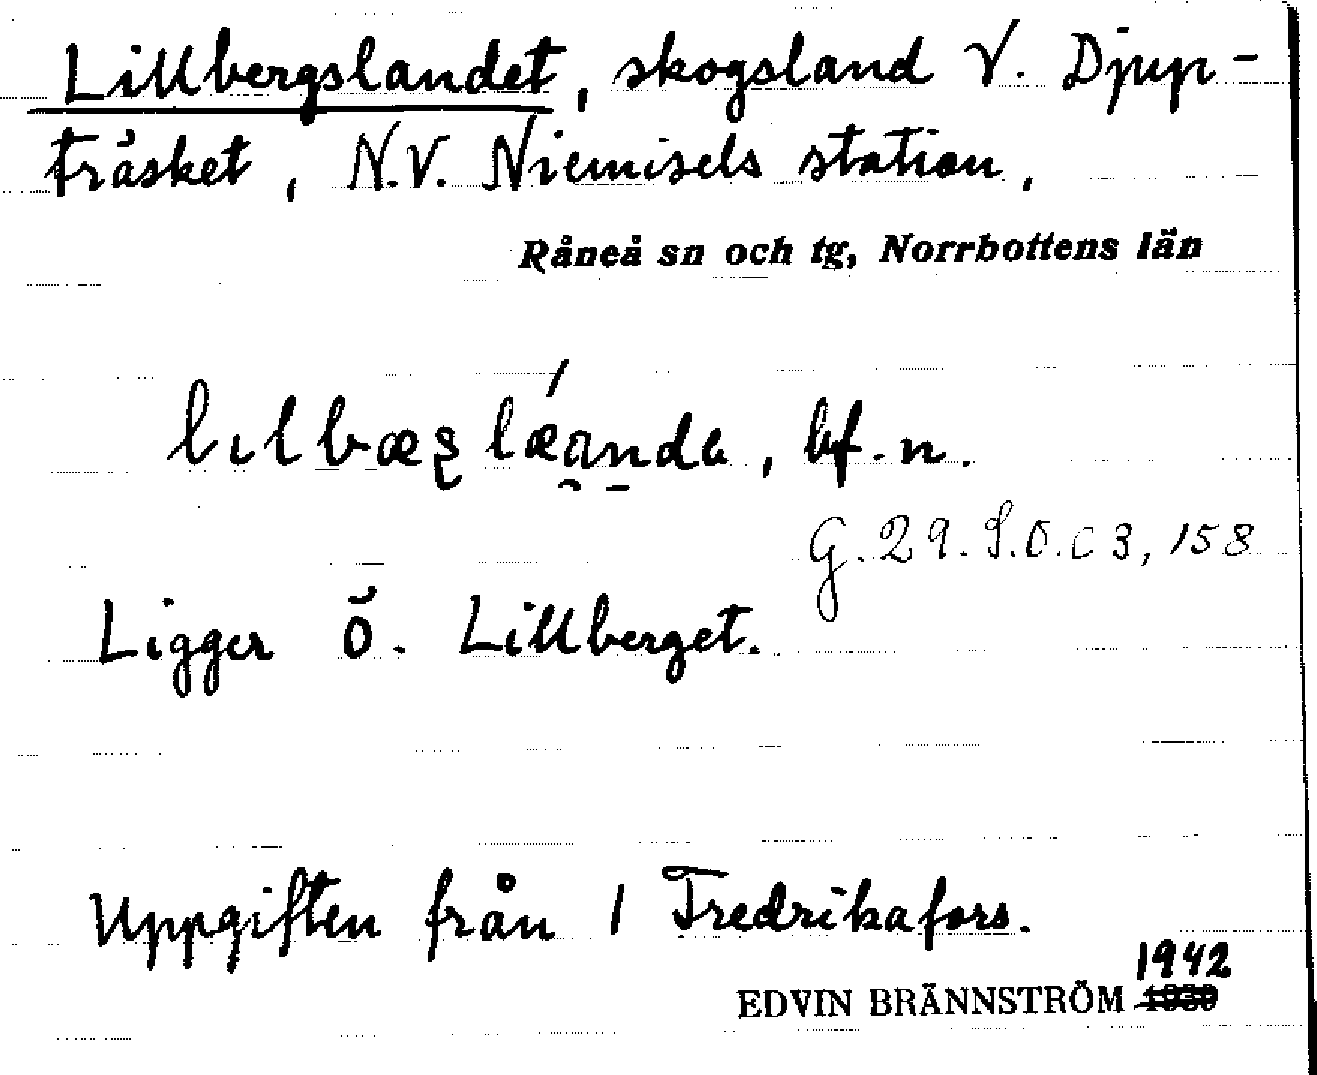 Lillbergslandet, skogsland V. Djup-
träsket, N.V. Niemisels station,
Råneå sn och tg, Norrbottens län
bf. n.
G. 29. S.O. c 3, 158
Ligger Ö. Lillberget.
Uppgiften från 1 Fredrikafors.
1942
EDVIN BRÄNNSTRÖM 1930